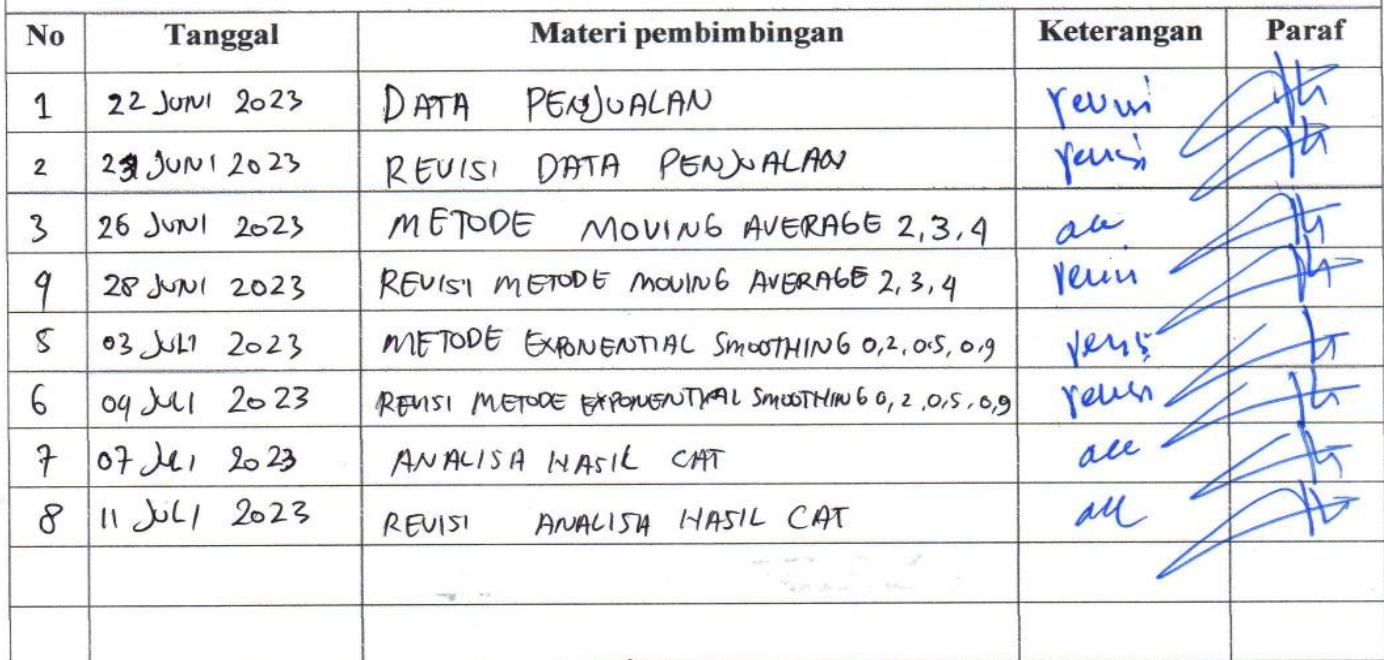 No Tanggal Materi pembimbingan Keterangan Paraf
1 22 JUNI 2023 DATA PENJUALAN revisi
2 23 JUNI 2023 REVISI DATA PENJUALAN revisi
3 26 JUNI 2023 METODE MOVING AVERAGE 2,3,4 acc
4 28 JUNI 2023 REVISI METODE MOVING AVERAGE 2,3,4 revisi
5 03 JULI 2023 METODE EXPONENTIAL SMOOTHING 0,2, 0.5, 0.9 revisi
6 04 JULI 2023 REVISI METODE EXPONENTIAL SMOOTHING 0,2,0,5,0,9 revisi
7 07 JULI 2023 ANALISA HASIL CAT acc
8 11 JULI 2023 REVISI ANALISA HASIL CAT acc